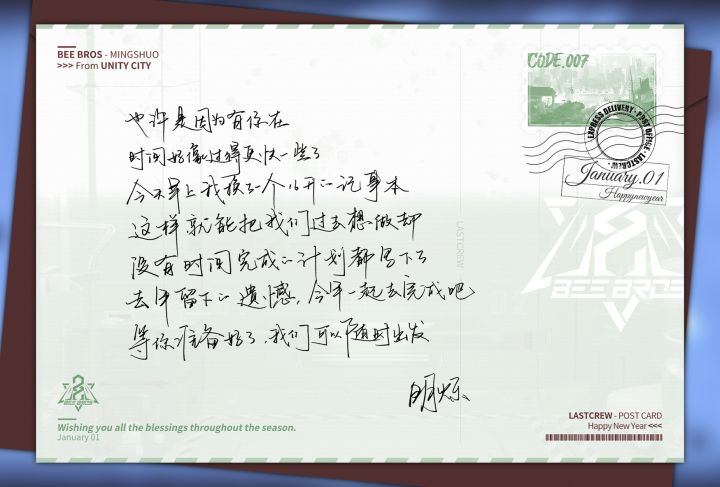 BEE BROS - MINGSHUO
>>> From UNITY CITY
CODE.007
EXPRESS DELIVERY · POST OFFICE · LASTCREW ·
January.01
Happynewyear
也许是因为有你在
时间好像过得更快一些了
今天早上我预了一个16开的记事本
这样就能把我们过去想做却
没有时间完成的计划都写下了
去年留下的遗憾,今年一起去完成吧
等你准备好了,我们可以随时出发
明烁
LASTCREW
BEE BROS
Wishing you all the blessings throughout the season.
January 01
LASTCREW - POST CARD
Happy New Year <<<